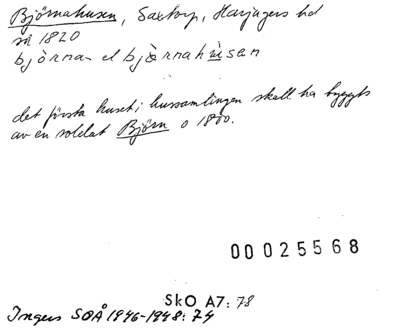 Björnahusen, Saxtorp, Harjagers hd
så 1820
bjò̀rna- el bjæ̀rnahu̇sen
det första huset i hussamlingen skall ha byggts
av en soldat Björn o 1800.
00025568
SkO A7: 78
Ingers SOÅ 1946-1948: 74